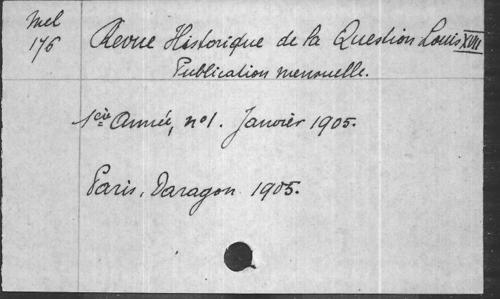 Mel
176
Revue Historique de la Question Louis XVII
Publication mensuelle.
1ère Année, nº1. Janvier 1905.
Paris, Daragon 1905.